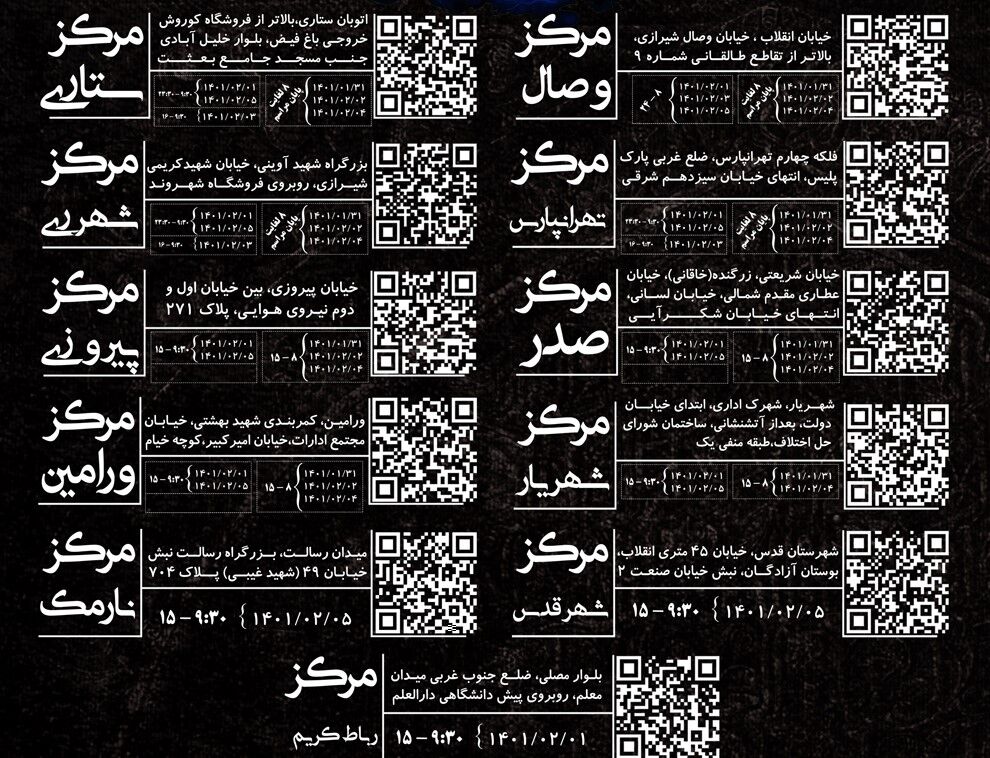 مرکز
وصال
خیابان انقلاب ، خیابان وصال شیرازی،
بالاتر از تقاطع طالقانی شماره ۹
۱۴۰۱/۰۱/۳۱
۱۴۰۱/۰۲/۰۲
۱۴۰۱/۰۲/۰۴
۸ لغایت
پایان مراسم
۱۴۰۱/۰۲/۰۱
۱۴۰۱/۰۲/۰۳
۱۴۰۱/۰۲/۰۵
۸ – ۲۴
مرکز
ستاری
اتوبان ستاری،بالاتر از فروشگاه کوروش
خروجی باغ فیض، بلوار خلیل آبادی
جنب مسجد جامع بعثت
۱۴۰۱/۰۱/۳۱
۱۴۰۱/۰۲/۰۲
۱۴۰۱/۰۲/۰۴
۸ لغایت
پایان مراسم
۱۴۰۱/۰۲/۰۱
۱۴۰۱/۰۲/۰۵
۹:۳۰ – ۲۲:۳۰
۱۴۰۱/۰۲/۰۳
۹:۳۰ – ۱۶
مرکز
تهرانپارس
فلکه چهارم تهرانپارس، ضلع غربی پارک
پلیس، انتهای خیابان سیزدهم شرقی
۱۴۰۱/۰۱/۳۱
۱۴۰۱/۰۲/۰۲
۱۴۰۱/۰۲/۰۴
۸ لغایت
پایان مراسم
۱۴۰۱/۰۲/۰۱
۱۴۰۱/۰۲/۰۵
۹:۳۰ – ۲۲:۳۰
۱۴۰۱/۰۲/۰۳
۹:۳۰ – ۱۶
مرکز
شهرری
بزرگراه شهید آوینی، خیابان شهیدکریمی
شیرازی، روبروی فروشگاه شهروند
۱۴۰۱/۰۱/۳۱
۱۴۰۱/۰۲/۰۲
۱۴۰۱/۰۲/۰۴
۸ لغایت
پایان مراسم
۱۴۰۱/۰۲/۰۱
۱۴۰۱/۰۲/۰۵
۹:۳۰ – ۲۲:۳۰
۱۴۰۱/۰۲/۰۳
۹:۳۰ – ۱۶
مرکز
صدر
خیابان شریعتی، زرگنده(خاقانی)، خیابان
عطاری مقدم شمالی، خیابان لسانی،
انتهای خیابان شکرآیی
۱۴۰۱/۰۱/۳۱
۱۴۰۱/۰۲/۰۲
۱۴۰۱/۰۲/۰۴
۸ – ۱۵
۱۴۰۱/۰۲/۰۱
۱۴۰۱/۰۲/۰۵
۹:۳۰ – ۱۵
مرکز
پیروزی
خیابان پیروزی، بین خیابان اول و
دوم نیروی هوایی، پلاک ۲۷۱
۱۴۰۱/۰۱/۳۱
۱۴۰۱/۰۲/۰۲
۱۴۰۱/۰۲/۰۴
۸ – ۱۵
۱۴۰۱/۰۲/۰۱
۱۴۰۱/۰۲/۰۵
۹:۳۰ – ۱۵
مرکز
شهریار
شهریار، شهرک اداری، ابتدای خیابان
دولت، بعداز آتشنشانی، ساختمان شورای
حل اختلاف،طبقه منفی یک
۱۴۰۱/۰۱/۳۱
۱۴۰۱/۰۲/۰۴
۸ – ۱۵
۱۴۰۱/۰۲/۰۱
۱۴۰۱/۰۲/۰۵
۹:۳۰ – ۱۵
مرکز
ورامین
ورامین، کمربندی شهید بهشتی، خیابان
مجتمع ادارات،خیابان امیرکبیر،کوچه خیام
۱۴۰۱/۰۱/۳۱
۱۴۰۱/۰۲/۰۲
۱۴۰۱/۰۲/۰۴
۸ – ۱۵
۱۴۰۱/۰۲/۰۱
۱۴۰۱/۰۲/۰۵
۹:۳۰ – ۱۵
مرکز
شهرقدس
شهرستان قدس، خیابان ۴۵ متری انقلاب،
بوستان آزادگان، نبش خیابان صنعت ۲
۱۴۰۱/۰۲/۰۵
۹:۳۰ – ۱۵
مرکز
نارمک
میدان رسالت، بزرگراه رسالت نبش
خیابان ۴۹ (شهید غیبی) پلاک ۷۰۴
۱۴۰۱/۰۲/۰۵
۹:۳۰ – ۱۵
مرکز
رباط کریم
بلوار مصلی، ضلع جنوب غربی میدان
معلم، روبروی پیش دانشگاهی دارالعلم
۱۴۰۱/۰۲/۰۱
۹:۳۰ – ۱۵